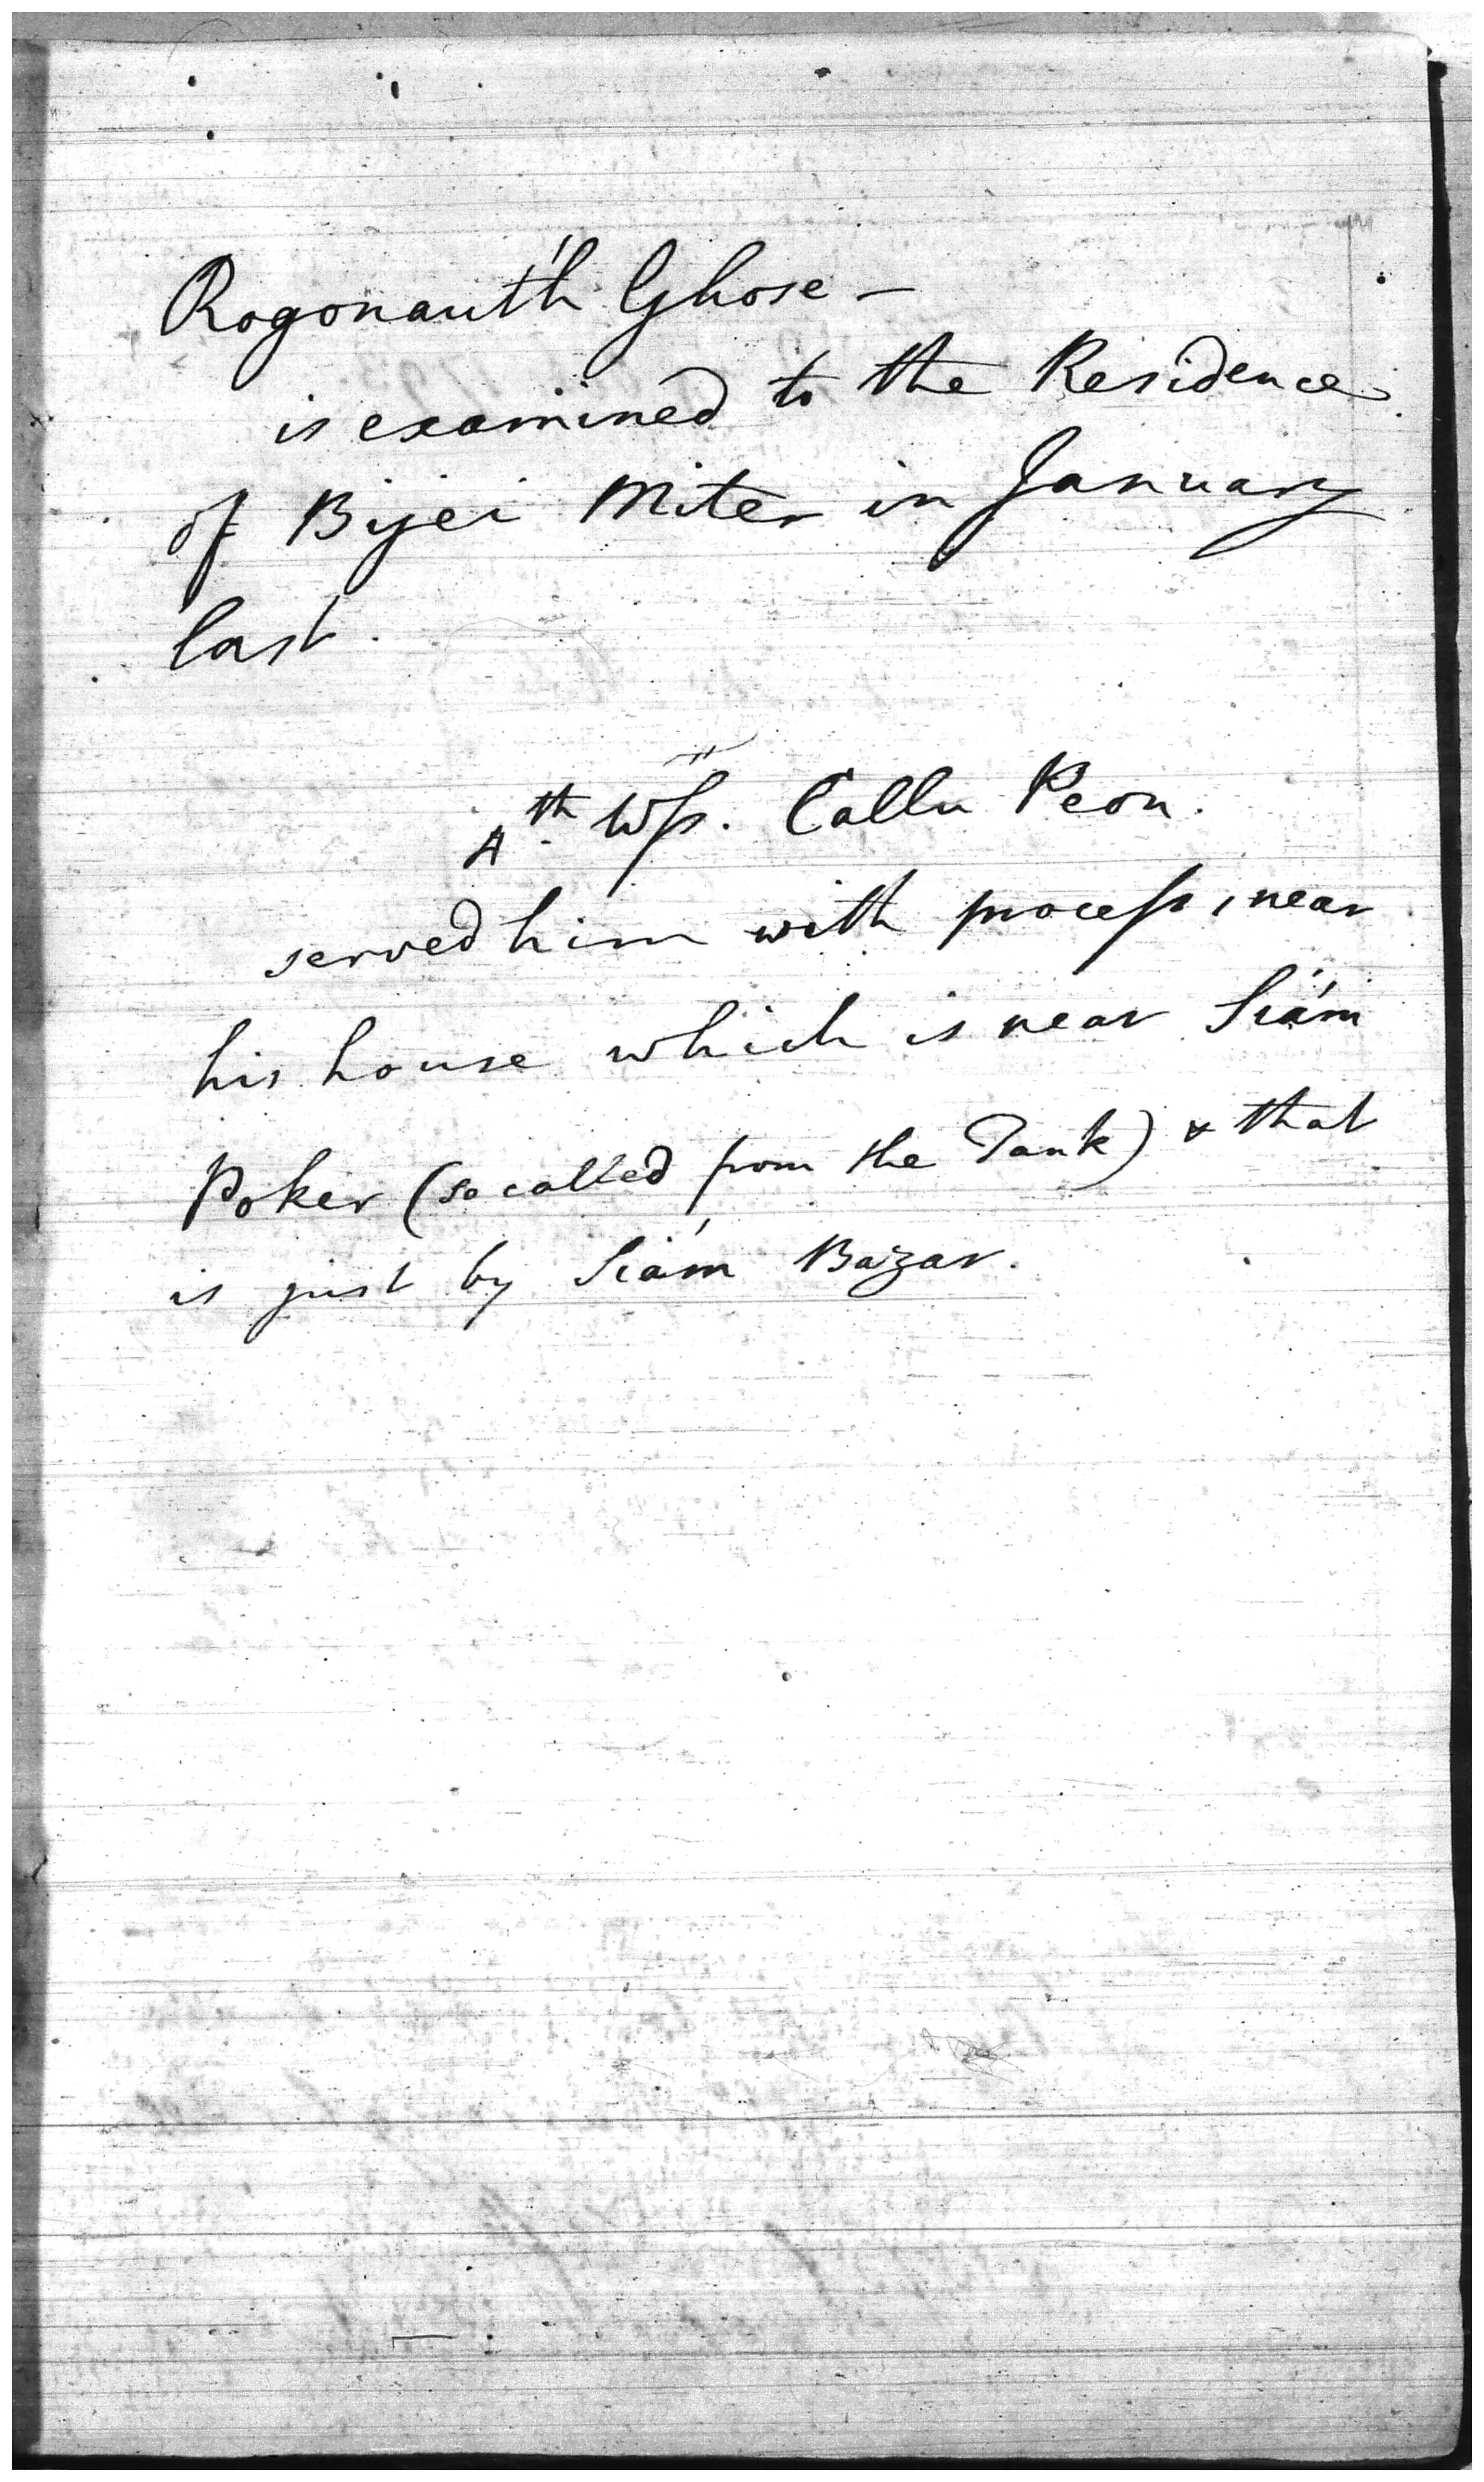 Rogonauth Ghose –
is examined to the Residence
of Bijei Miter in January
last.
4th. Wss. Callu Peon.
served him with process, near
his house which is near Siám
Poker (so called from the Tank) & that
is just by Siám Bazar.